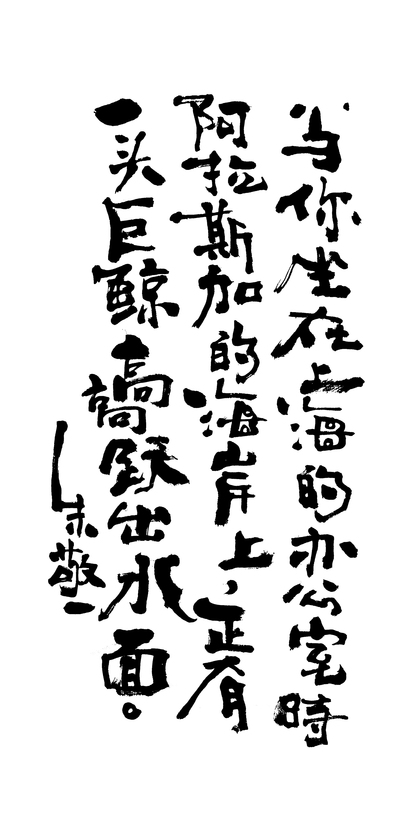 当你坐在上海的办公室時
阿拉斯加的海岸上，正有
一头巨鲸高高跃出水面。
—朱敬一